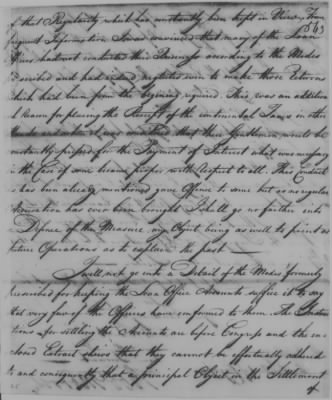 of that Regularity which has constantly been kept in View. From
543
frequent Information I was convinced that many of the Loan
Officers had not conducted their Business according to the Modes
prescribed and had indeed neglected even to make those Returns
which had been from the beginning required. This was an additional
Reason for placing the Receipt of the continental Taxes in other
Hands and when it was considered that these Gentlemen would be
constantly pressed for the Payment of Interest what was necessary
in the Case of some became proper with Respect to all. This Conduct
as has been already mentioned gave Offence to some but as no regular
Accusation has ever been brought I shall go no farther into
Defence of the Measure, my Object being as well to point out
future Operations as to explain the past —
I will not go into a Detail of the Modes formerly
prescribed for keeping the Loan Office Accounts suffice it to say
that very few of the Officers have conformed to them. The Instructions
for settling the Accounts are before Congress and the
Extract shews that they cannot be effectually adhered
to and consequently that a principal Object in the Settlement
of